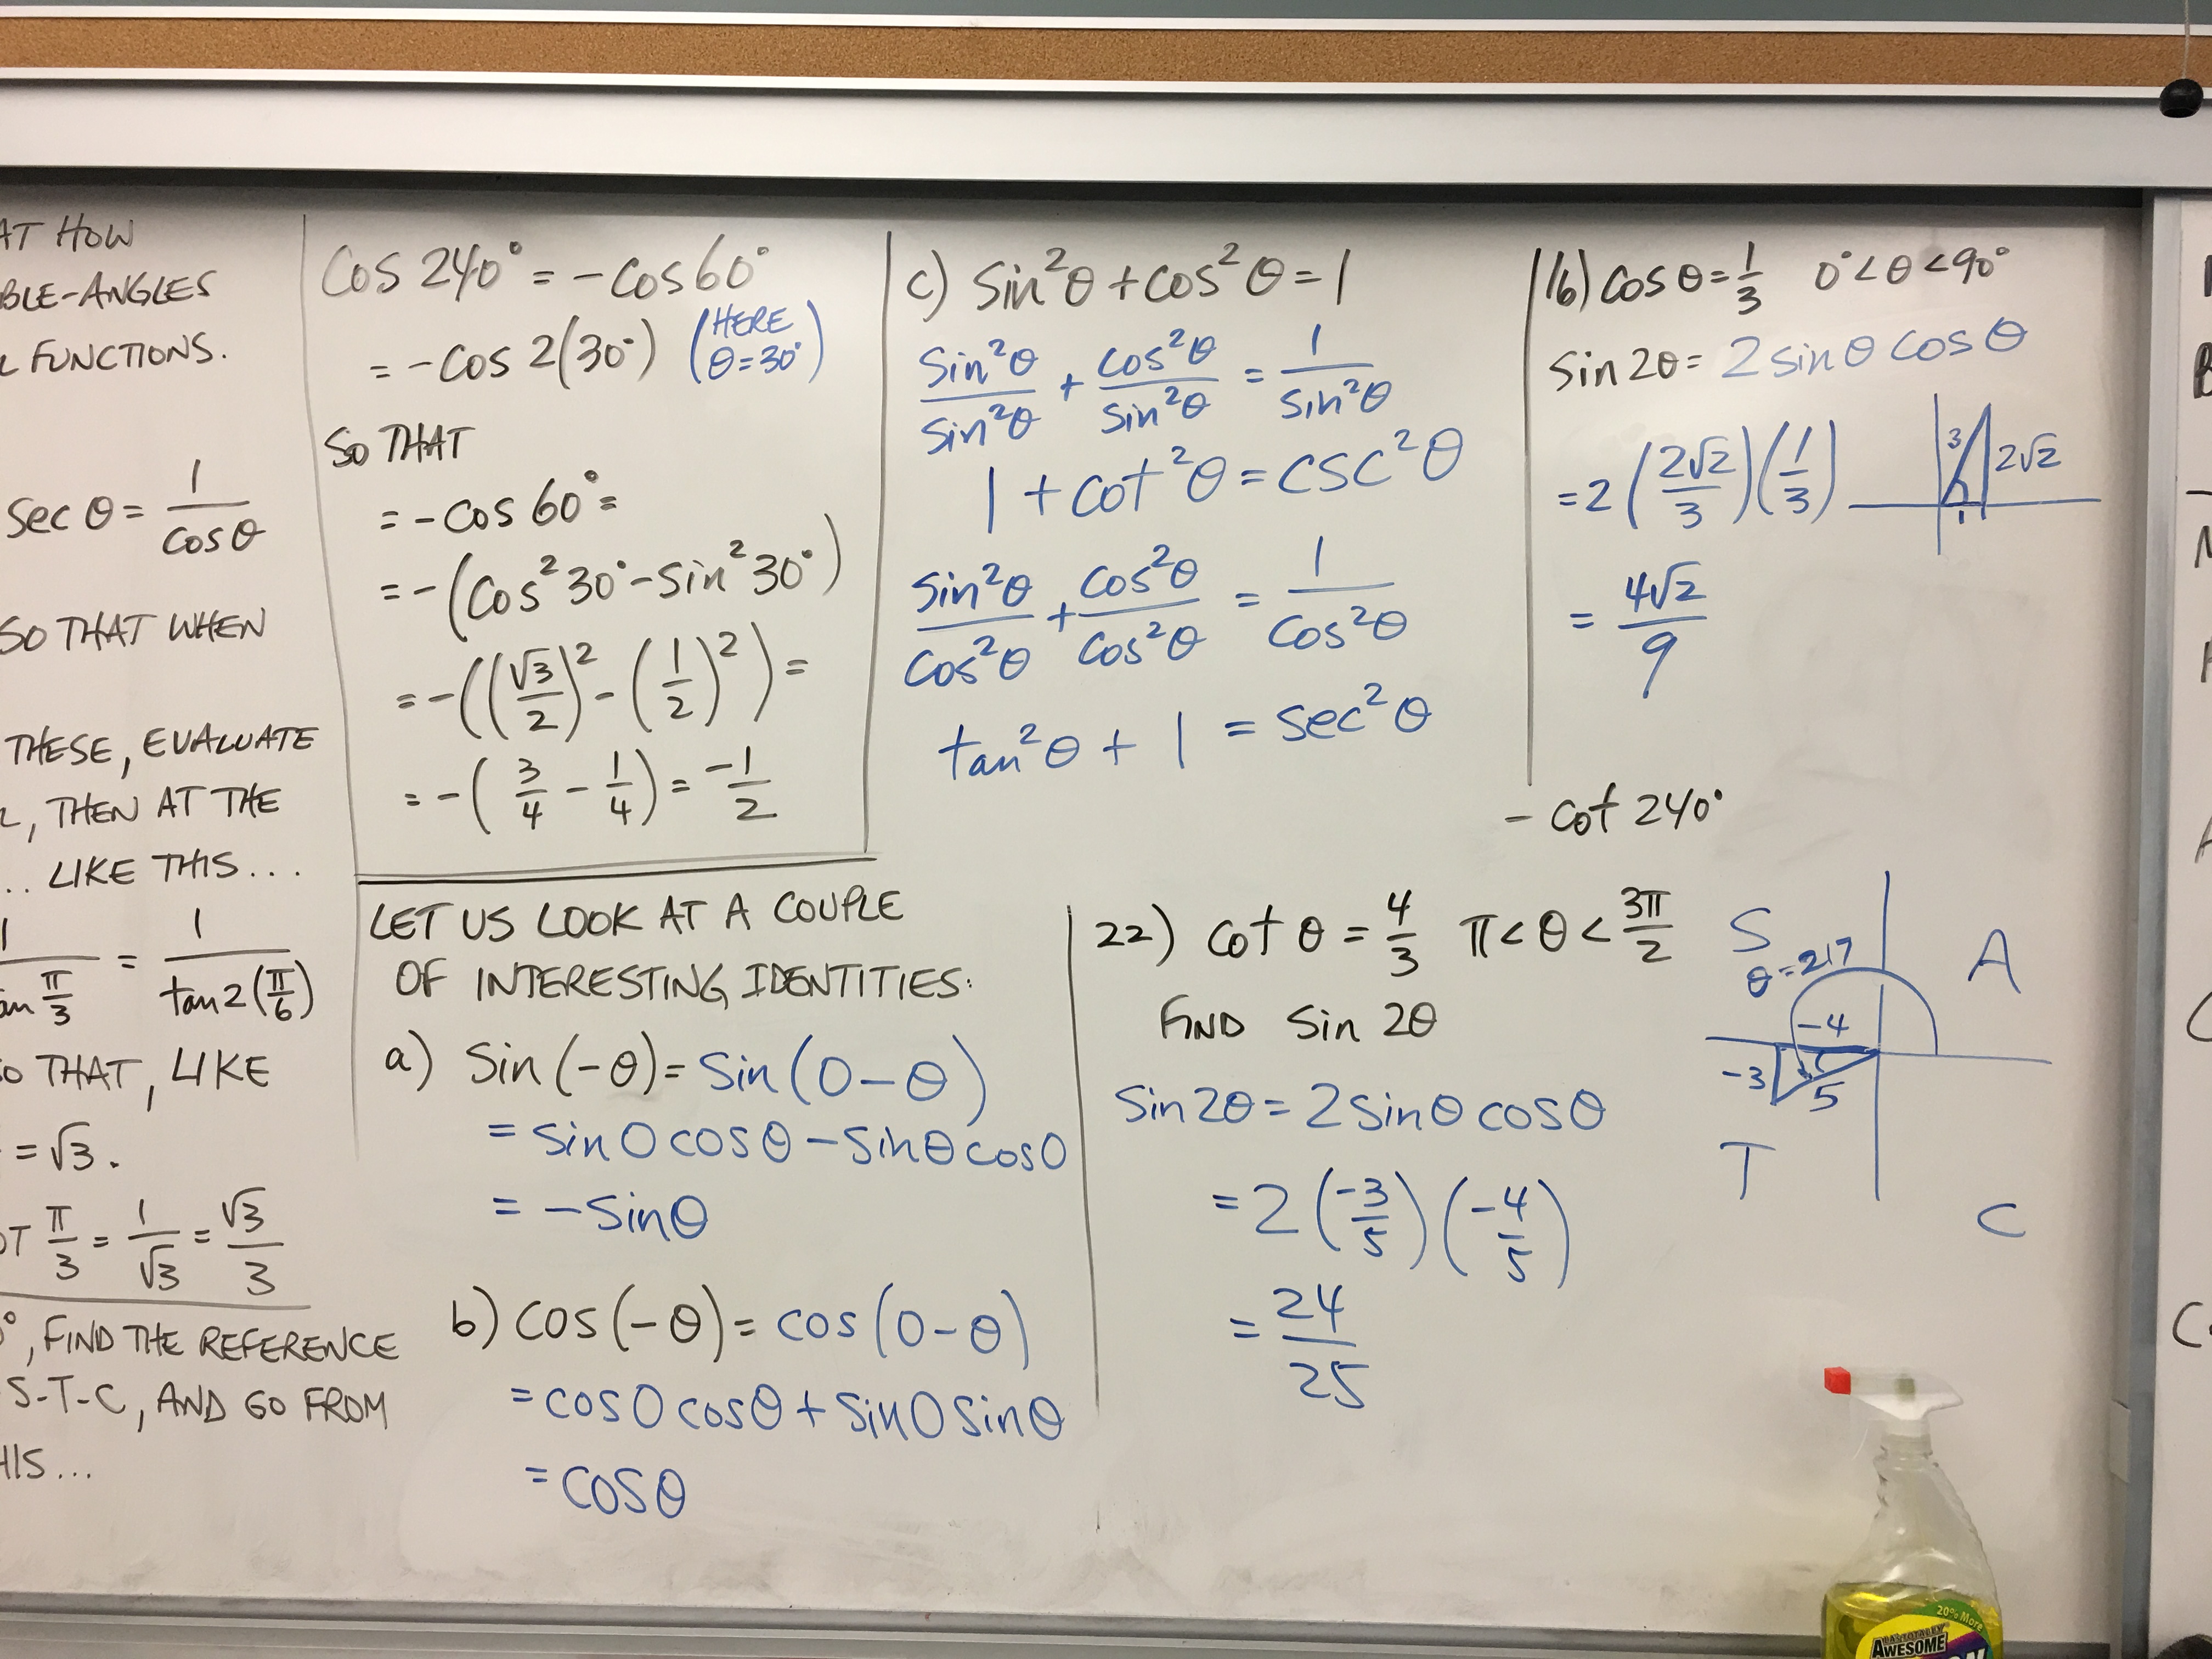 AT HOW
BLE-ANGLES
FUNCTIONS.
sec θ = 1/cos θ
SO THAT WHEN
THESE, EVALUATE
, THEN AT THE
.. LIKE THIS...
1/tan π/3 = 1/tan 2(π/6)
SO THAT, LIKE
= √3.
OT π/3 = 1/√3 = √3/3
°, FIND THE REFERENCE
S-T-C, AND GO FROM
HIS...
Cos 240° = -cos 60°
= -cos 2(30°) (HERE θ=30°)
SO THAT
= -cos 60° =
= -(cos²30° - sin²30°)
= -((√3/2)² - (1/2)²) =
= -(3/4 - 1/4) = -1/2
LET US LOOK AT A COUPLE
OF INTERESTING IDENTITIES:
a) Sin(-θ) = Sin(0-θ)
= sin 0 cos θ - sin θ cos 0
= -sin θ
b) cos(-θ) = cos(0-θ)
= cos 0 cos θ + sin 0 sin θ
= cos θ
c) Sin²θ + cos²θ = 1
Sin²θ/Sin²θ + cos²θ/sin²θ = 1/sin²θ
1 + cot²θ = csc²θ
Sin²θ/cos²θ + cos²θ/cos²θ = 1/cos²θ
tan²θ + 1 = sec²θ
16) cos θ = 1/3 0° < θ < 90°
Sin 2θ = 2 sin θ cos θ
= 2(2√2/3)(1/3)
3
2√2
1
= 4√2/9
- cot 240°
22) cot θ = 4/3 π < θ < 3π/2
FIND sin 2θ
Sin 2θ = 2 sin θ cos θ
= 2(-3/5)(-4/5)
= 24/25
S
A
θ = 217
-4
-3
5
T
C
20% More
LA'S TOTALLY
AWESOME